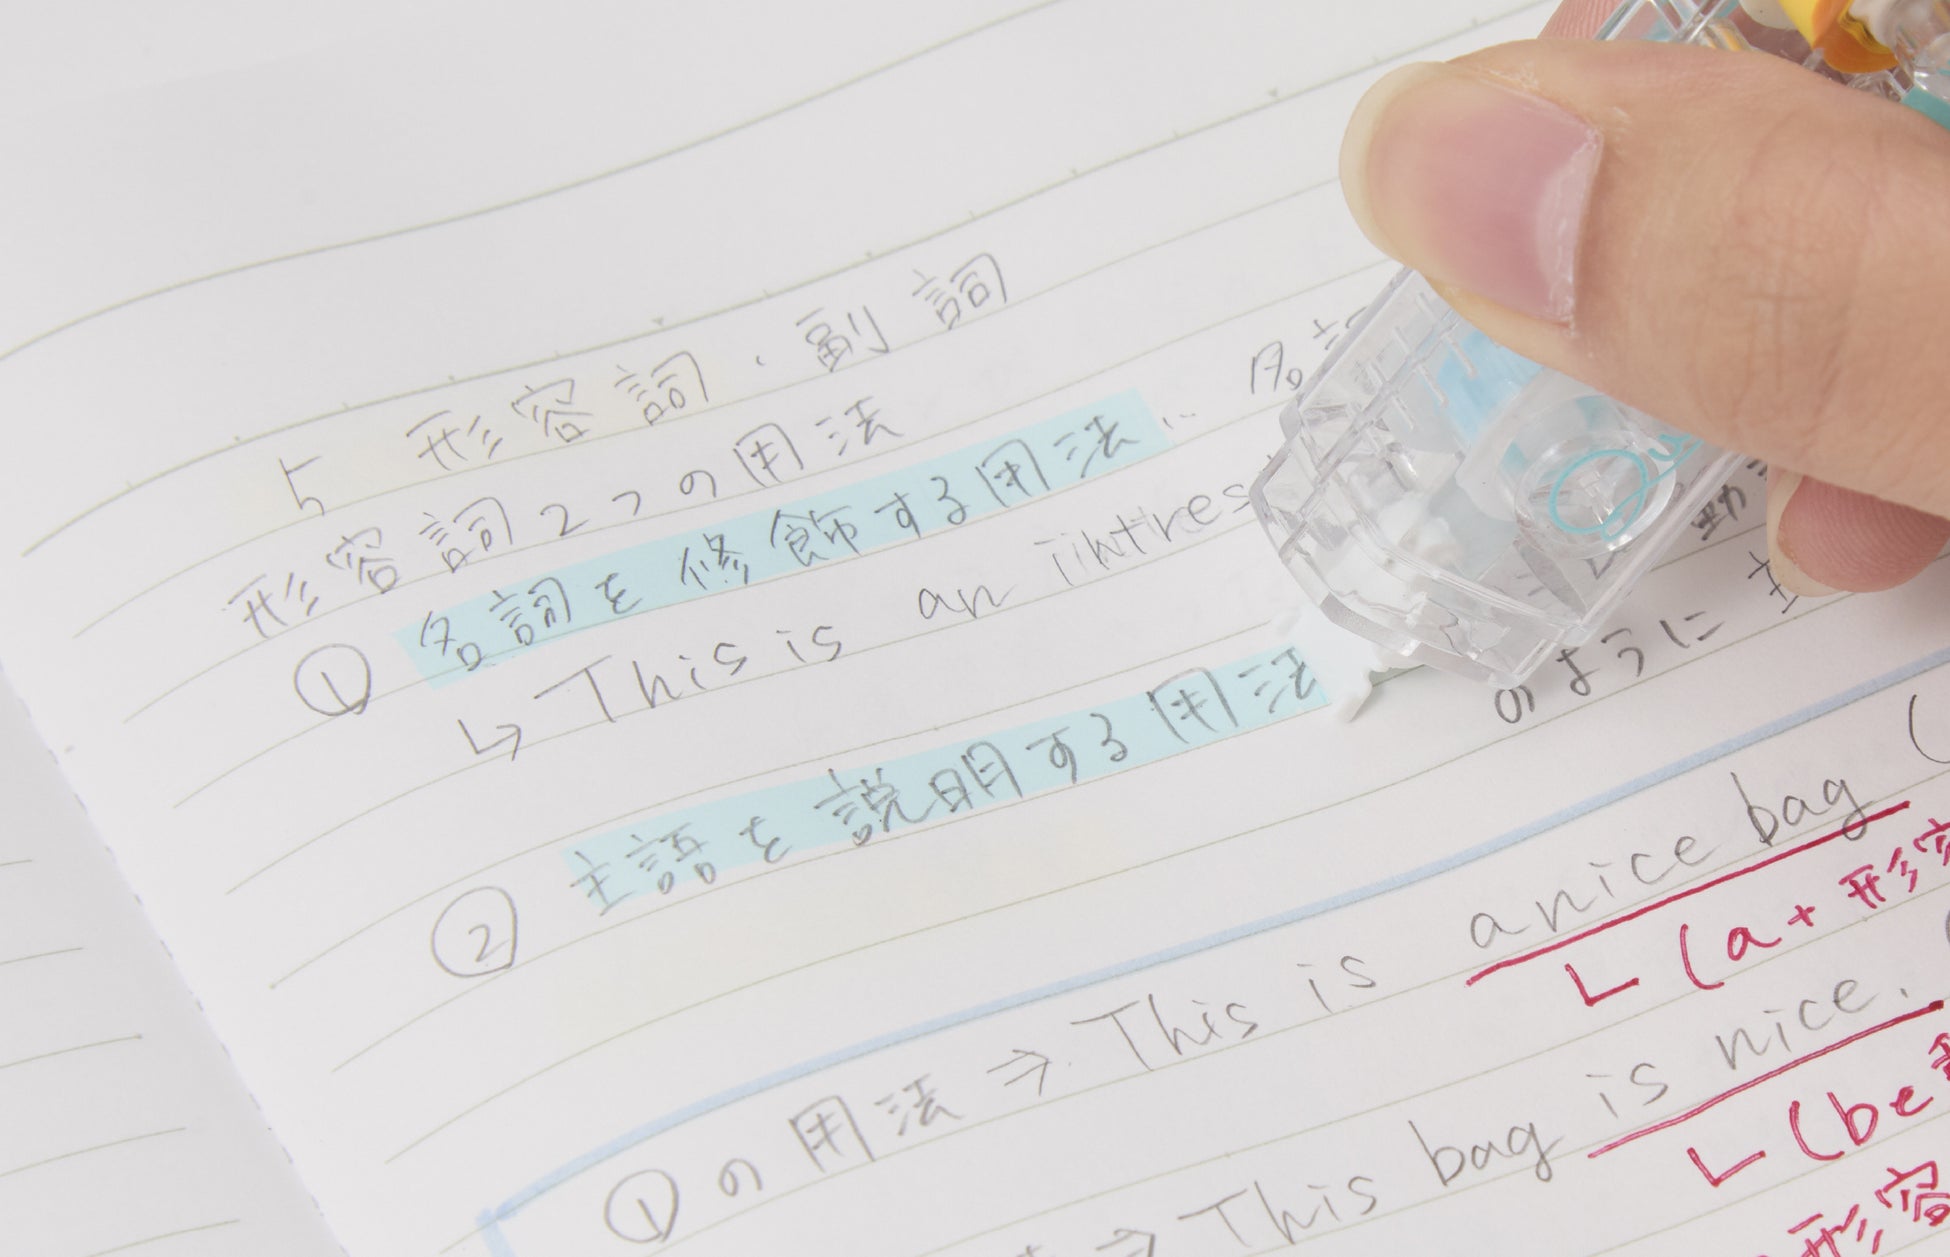 5 形容詞・副詞
形容詞2つの用法
① 名詞を修飾する用法… 名詞
↳ This is an iintres
② 主語を説明する用法
のように
①の用法 ⇒ This is a nice bag (
(a + 形容
⇒ This bag is nice.
(be
形容